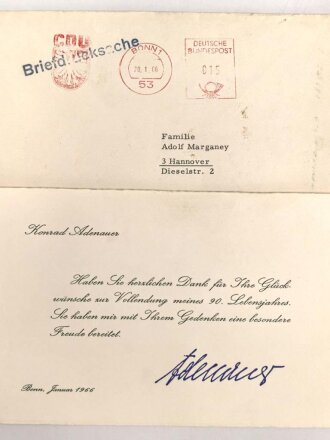 CDU
Briefdrucksache
BONN 1
20.1.66
53
DEUTSCHE
BUNDESPOST
015
Familie
Adolf Marganey
3 Hannover
Dieselstr. 2
Konrad Adenauer
Haben Sie herzlichen Dank für Ihre Glück-
wünsche zur Vollendung meines 90. Lebensjahres.
Sie haben mir mit Ihrem Gedenken eine besondere
Freude bereitet.
Adenauer
Bonn, Januar 1966